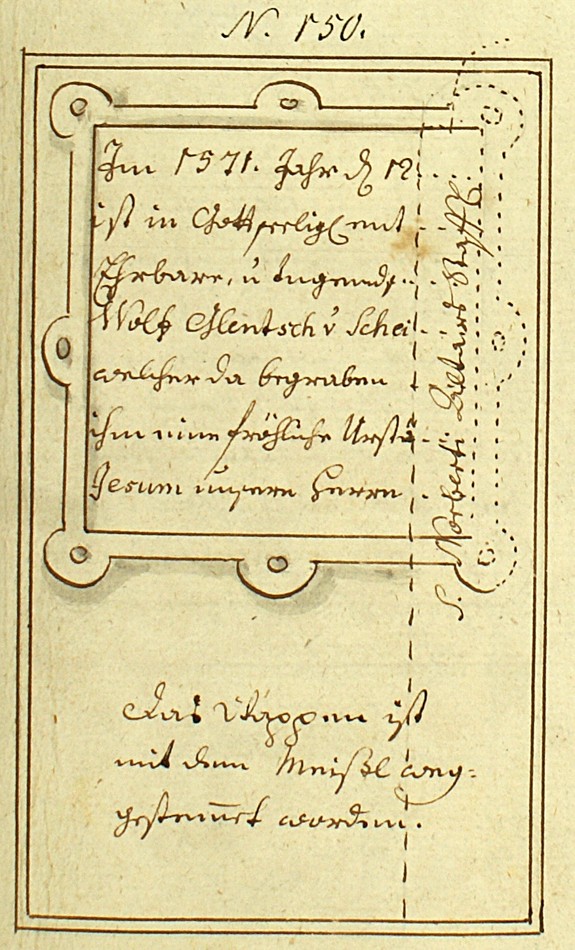 N. 150.
Im 1571. Jahr dȝ 12...
ist in Gott seelig. ent...
Ehrbare, ŭ tugends...
Wolf Glentsch v Schei...
welcher da begraben
ihm eine fröhliche Urstä...
Jesum unsern Herrn.
S. Norberti Altars Staffl
Das Wappen ist
mit dem Meißl weg=
gestem̅et worden.